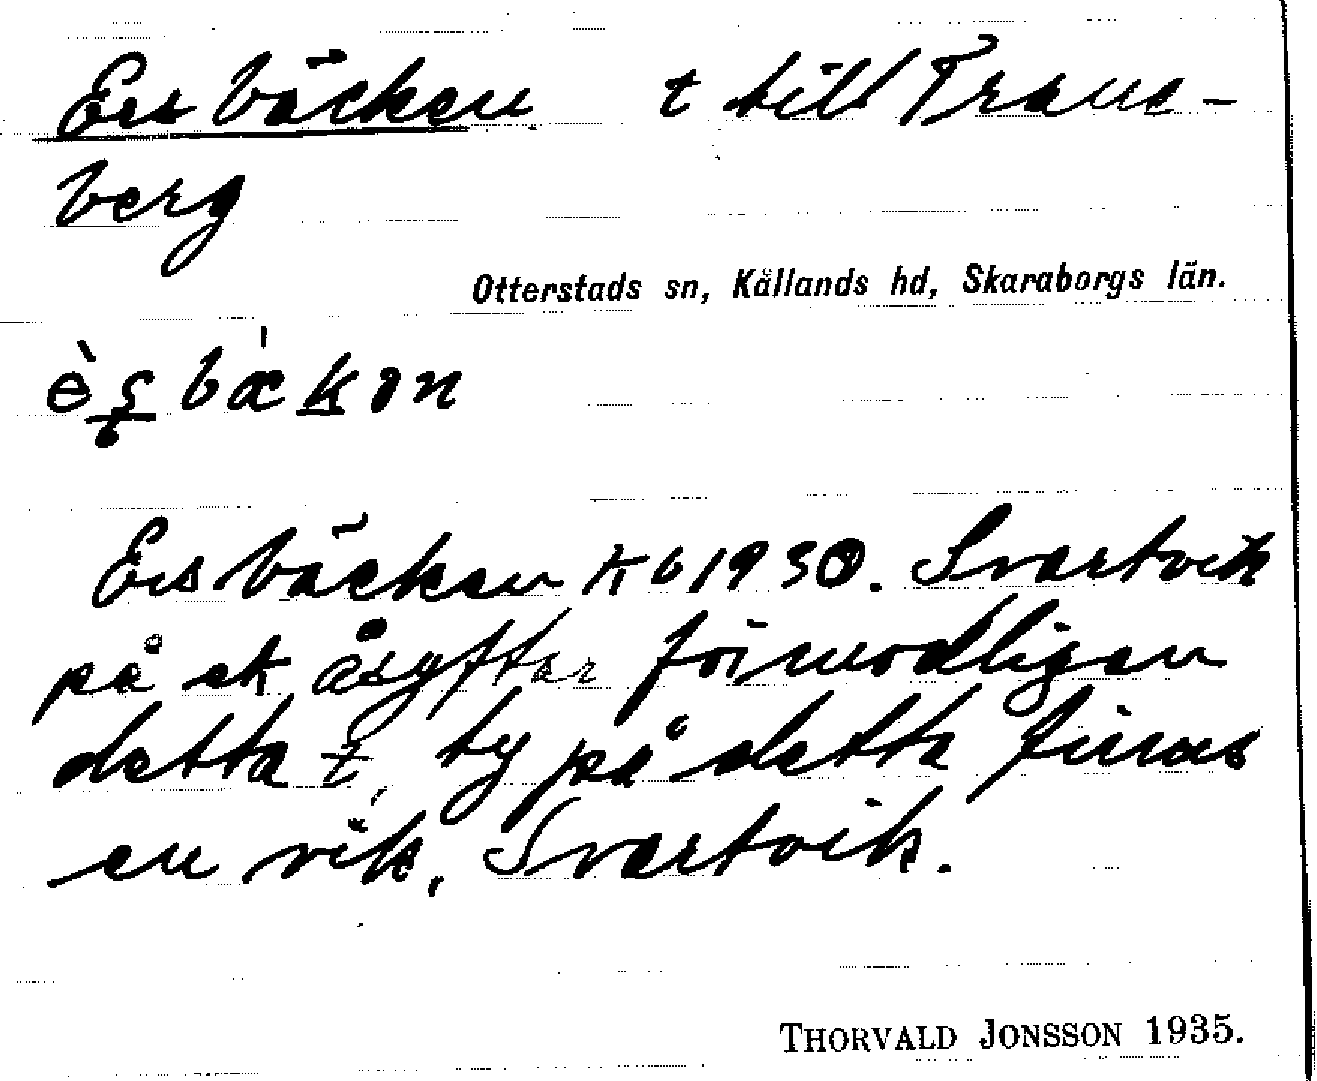 Ens bäcken t till Trane-
berg
Otterstads sn, Kållands hd, Skaraborgs län.
bækən
Ens bäcken Kb 1930. Svartvik
på ek åsyftar förmodligen
detta t, ty på detta finns
en vik, Svartvik.
THORVALD JONSSON 1935.